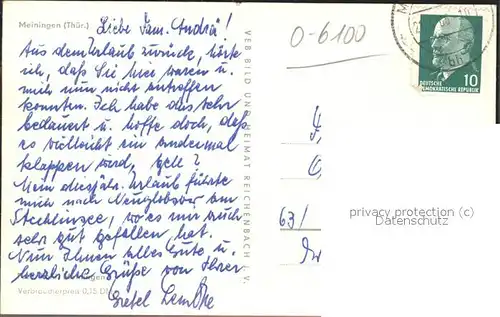 Meiningen (Thür.)
Liebe Fam. Andrä!
Aus dem Urlaub zurück, hörte
ich, daß Sie hier waren u.
mich nun nicht antreffen
konnten. Ich habe das sehr
bedauert u. hoffe doch, daß
es vielleicht ein andermal
klappen wird, gell?
Mein diesjähr. Urlaub führte
mich nach Neuglobsow am
Stechlinsee, wo es mir auch
sehr gut gefallen hat.
Nun Ihnen alles Gute u.
herzliche Grüße von Ihrer
Verbraucherpreis 0,15 DM
Gretel Lemcke
VEB BILD UND HEIMAT REICHENBACH i. V.
O-6100
10
DEUTSCHE
DEMOKRATISCHE REPUBLIK
63/
privacy protection (c)
Datenschutz